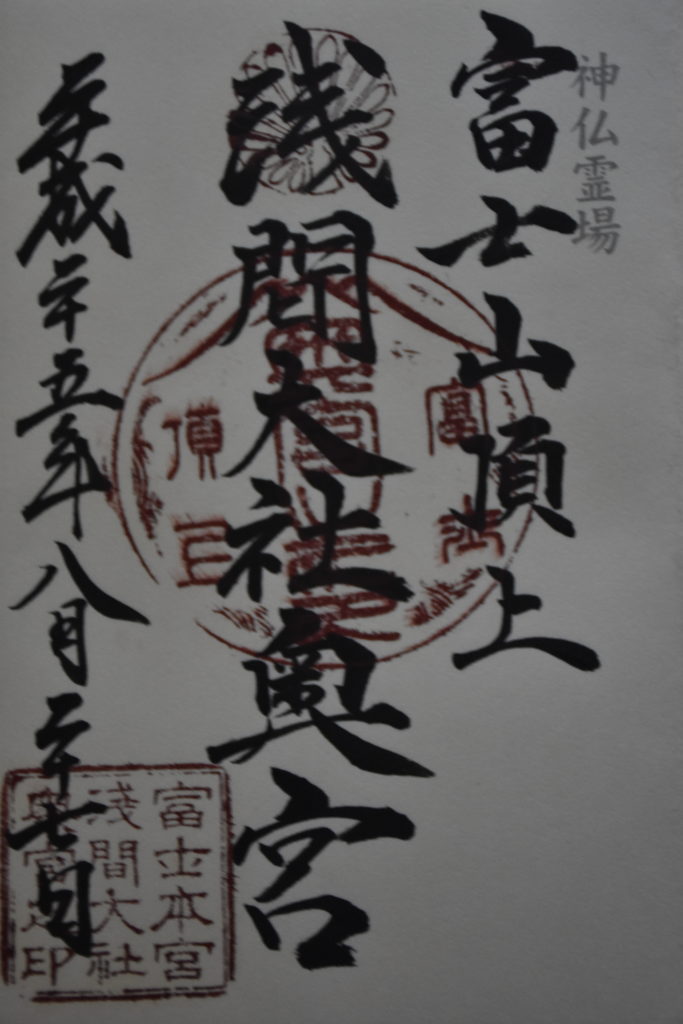 神仏霊場
富士山頂上
浅間大社奥宮
平成二十五年八月二十七日
富士
頂上
富士本宮
浅間大社
奥宮之印